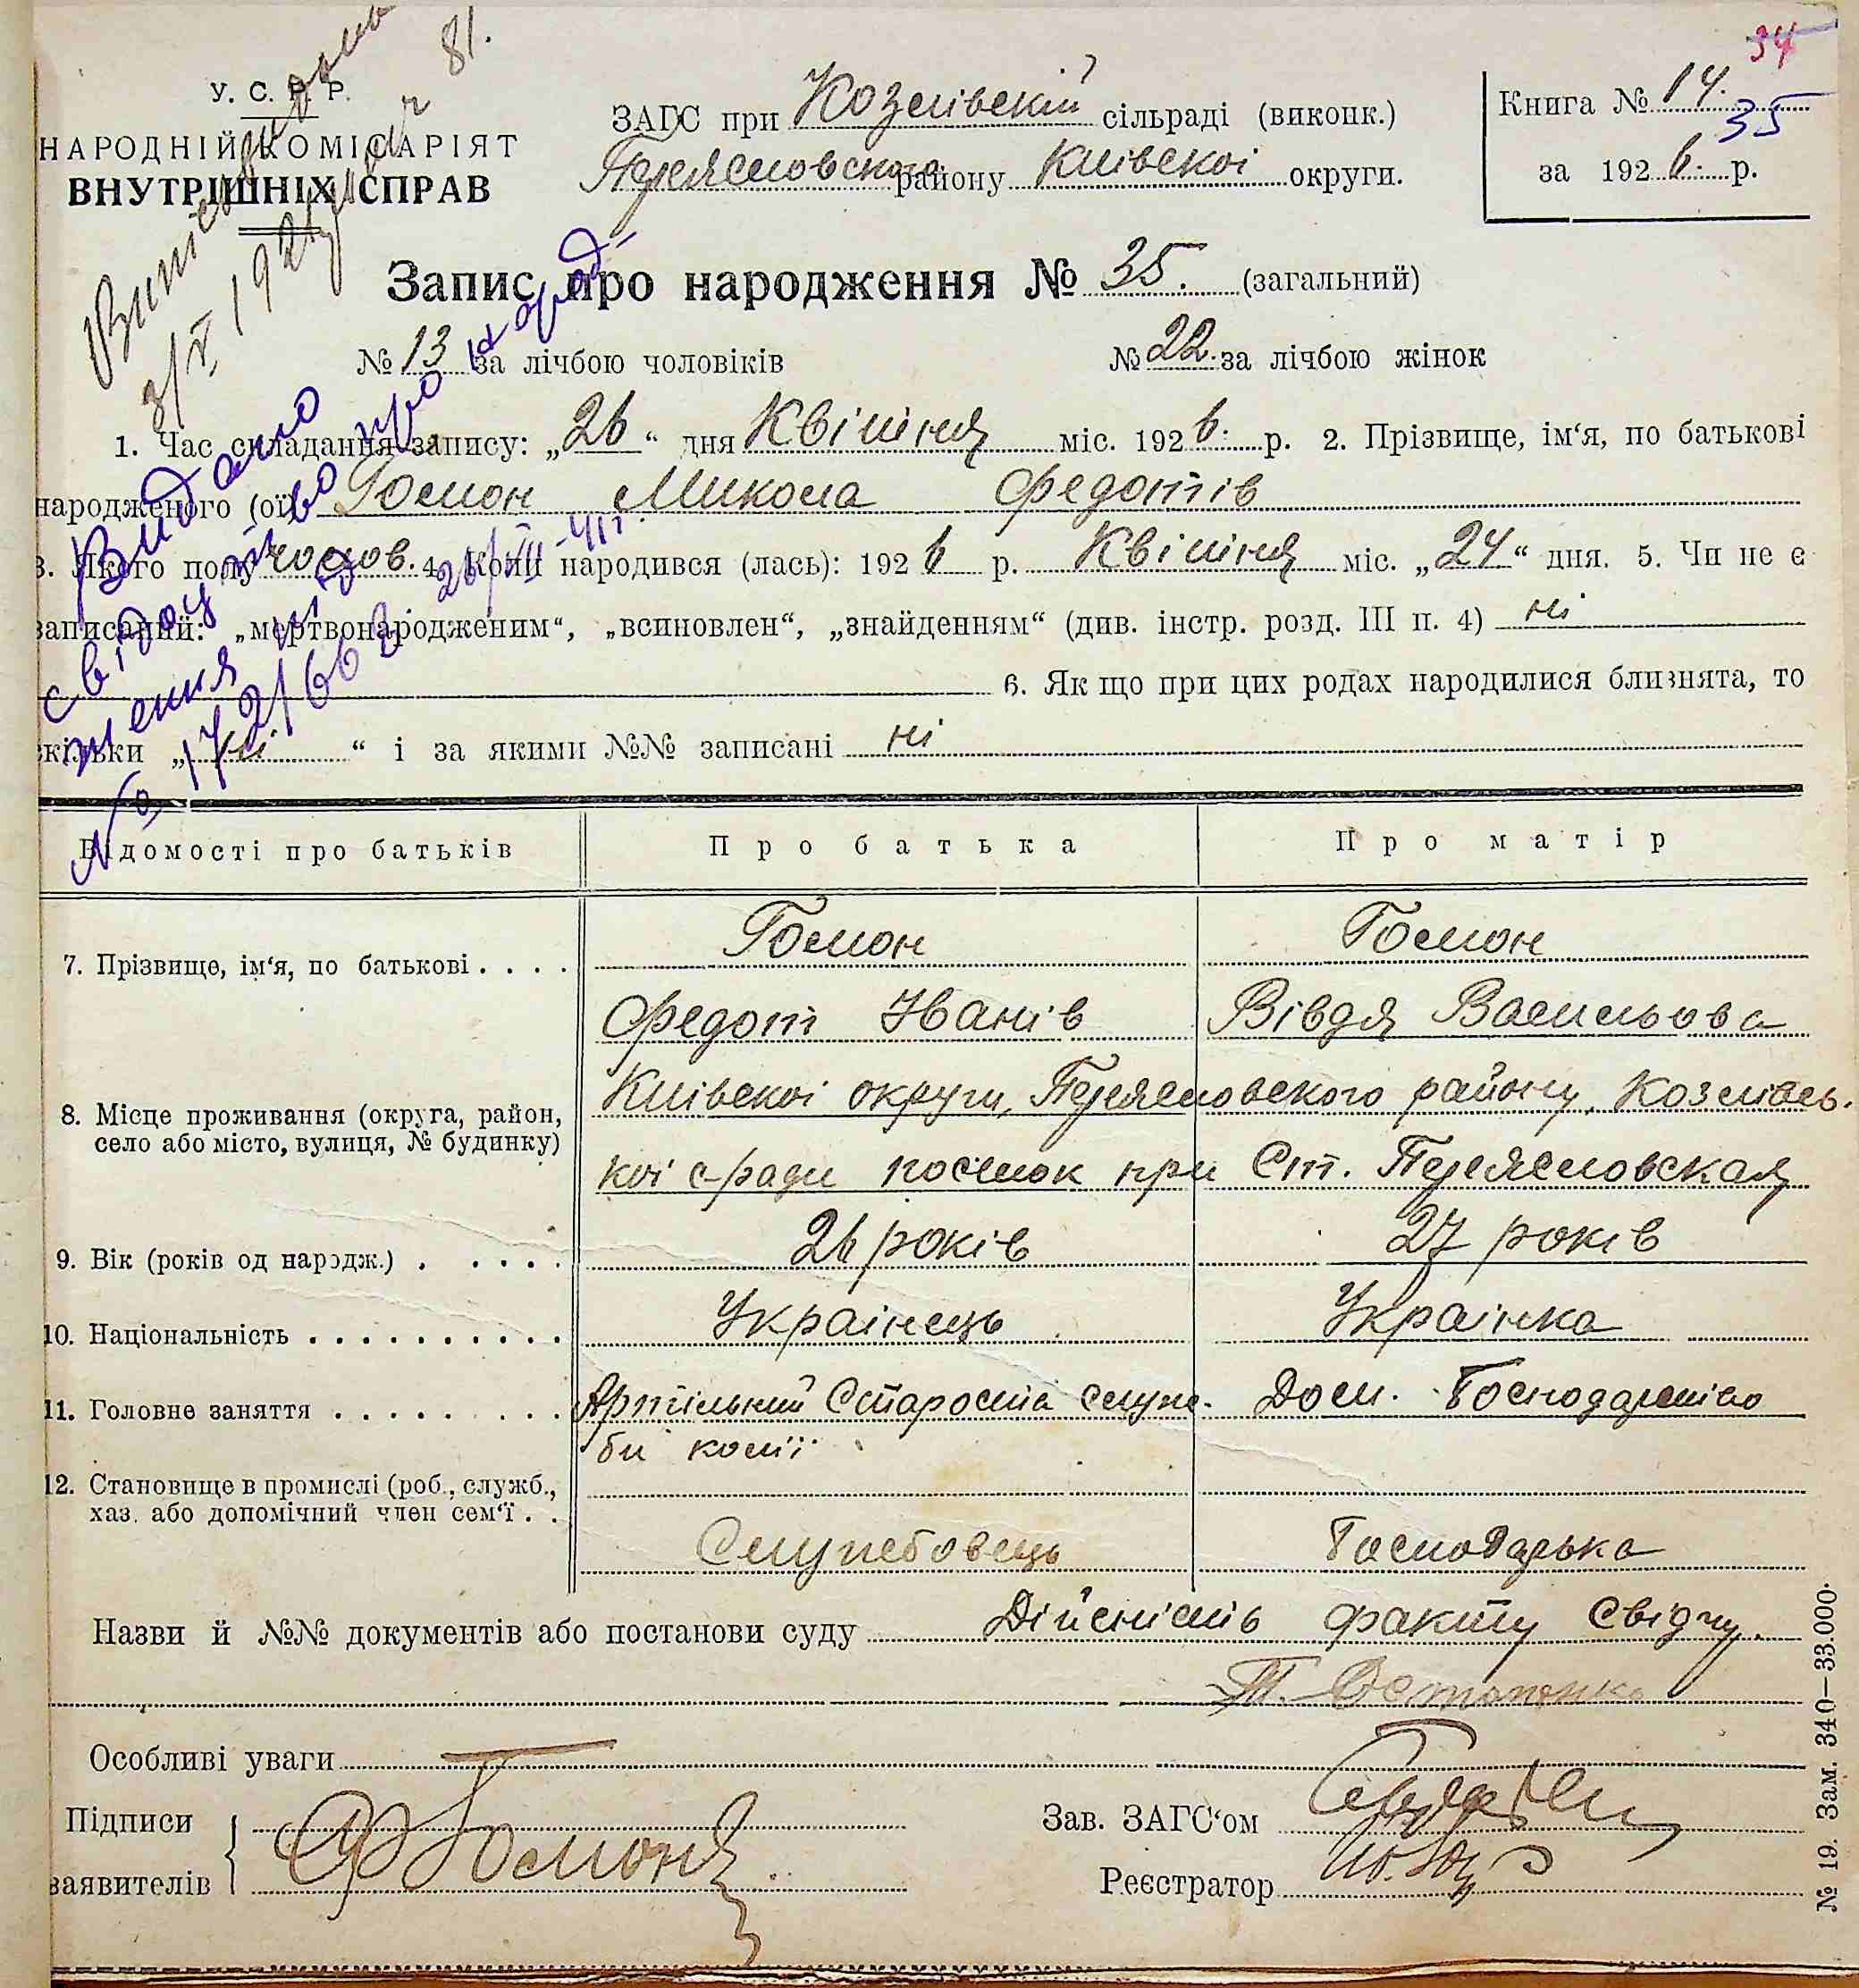 34
81.
У. С. Р. Р.
НАРОДНІЙ КОМІСАРІЯТ
ВНУТРІШНІХ СПРАВ
ЗАГС при Козлівскій сільраді (виконк.)
Переясловского району Київскоі округи.
Книга № 14.
35
за 1926. р.
Запис про народження № 35. (загальний)
№ 13 за лічбою чоловіків № 22. за лічбою жінок
1. Час складання запису: „26“ дня Квітня міс. 1926. р. 2. Прізвище, ім‘я, по батькові
народженого (ої) Гомон Микола Федотів
3. Якого полу чолов. 4. Коли народився (лась): 1926 р. Квітня міс. „24“ дня. 5. Чи не є
записаний: „мертвонародженим“, „всиновлен“, „знайденням“ (див. інстр. розд. III п. 4) ні
6. Як що при цих родах народилися близнята, то
скільки „ ні “ і за якими №№ записані ні
Видано
свідоцтво про народ-
ження
№ 172/66
Відомості про батьків Про батька Про матір
7. Прізвище, ім‘я, по батькові . . . . Гомон Гомон
Федот Іванів Вівдя Васильова
8. Місце проживання (округа, район, Київскоі округи, Переясловского району, Козлівсь-
село або місто, вулиця, № будинку) кої с-ради посьолок при Ст. Переясловская
9. Вік (років од народж.) . . . . . 26 років 27 років
10. Національність . . . . . . . . . . Українець Українка
11. Головне заняття . . . . . . . . Артільний Староста служ- Дом. Господарство
би колії
12. Становище в промислі (роб., служб.,
хаз. або допомічний член сем‘ї . . Служебовець Господарька
Назви й №№ документів або постанови суду Дійсність факту свідчу.
Т. Остапенко
Особливі уваги
Підписи
заявителів Ф Гомон
Зав. ЗАГС‘ом
Реєстратор
№ 19. Зам. 340—33.000.